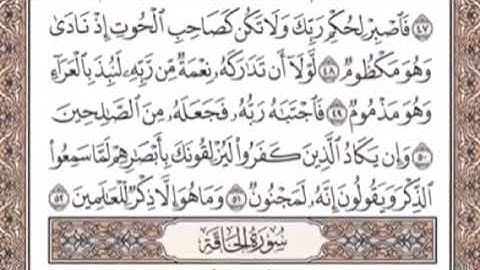 ٤٧ فَٱصۡبِرۡ لِحُكۡمِ رَبِّكَ وَلَا تَكُن كَصَاحِبِ ٱلۡحُوتِ إِذۡ نَادَىٰ
وَهُوَ مَكۡظُومٞ ٤٨ لَّوۡلَآ أَن تَدَٰرَكَهُۥ نِعۡمَةٞ مِّن رَّبِّهِۦ لَنُبِذَ بِٱلۡعَرَآءِ
وَهُوَ مَذۡمُومٞ ٤٩ فَٱجۡتَبَٰهُ رَبُّهُۥ فَجَعَلَهُۥ مِنَ ٱلصَّٰلِحِينَ
٥٠ وَإِن يَكَادُ ٱلَّذِينَ كَفَرُواْ لَيُزۡلِقُونَكَ بِأَبۡصَٰرِهِمۡ لَمَّا سَمِعُواْ
ٱلذِّكۡرَ وَيَقُولُونَ إِنَّهُۥ لَمَجۡنُونٞ ٥١ وَمَا هُوَ إِلَّا ذِكۡرٞ لِّلۡعَٰلَمِينَ ٥٢
سُورَةُ الحَاقَّةِ